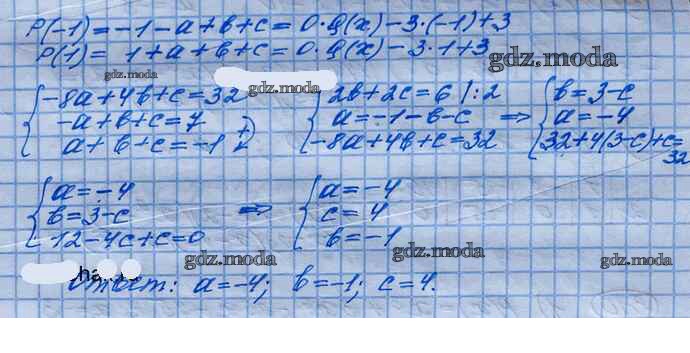 P(-1)=-1-a+b+c=0·g(x)-3·(-1)+3
P(1)= 1+a+b+c=0·g(x)-3·1+3
gdz.moda
gdz.moda
gdz.moda
{-8a+4b+c=32 {2b+2c=6 /:2 {b=3-c
-a+b+c=7 a=-1-b-c ⇒ a=-4
a+b+c=-1 +) -8a+4b+c=32 32+4(3-c)+c=32
{a=-4 {a=-4
b=3-c ⇒ c=4
12-4c+c=0 b=-1
gdz.moda
gdz.moda
gdz.moda
Ответ: a=-4; b=-1; c=4.